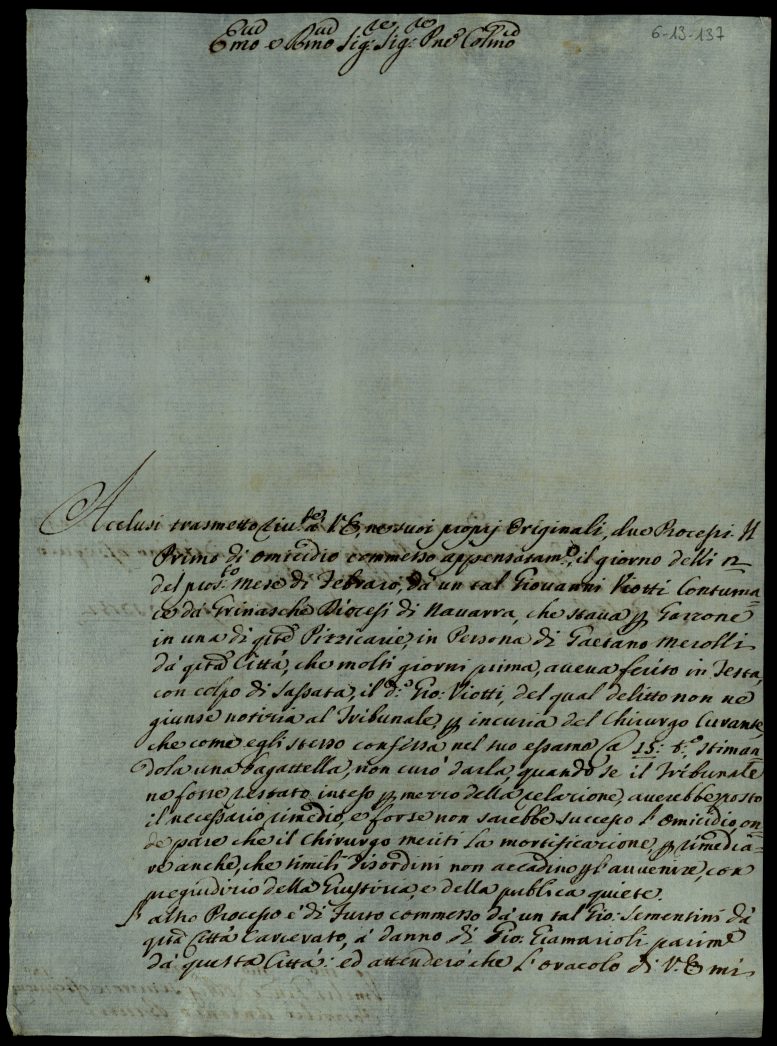 Emo e Rmo Sig.r Sig.r Pne Colmo
6-13-137
Acclusi trasmetto à V. E., ne suoi proprj Originali, due Processi. Il
Primo di omicidio commesso appensatam.e, il giorno delli 12
del pros.o Mese di Febraro, da un tal Giovanni Viotti Contuma=
ce da Grinasche Diocesi di Navarra, che stava p Garzone
in una di qste Pizzicarie, in Persona di Gaetano Merolli
da qsta Città, che molti giorni prima, aveva ferito in Testa,
con colpo di Sassata, il d.o Gio: Viotti, del qual delitto non ne
giunse notizia al Tribunale, p incuria del Chirurgo Curante,
che come egli stesso confessa nel suo essame fa 15: t.o stiman
dola una bagattella, non curò darla, quando se il Tribunale
ne fosse restato inteso p mezzo della relazione, averebbe posto
il necessario rimedio, e forse non sarebbe successo l'Omicidio, on
de pare che il Chirurgo meriti la mortificazione, p rimedia=
re anche, che simili disordini non accadino p l'avvenire, con
pregiudizio della Giustizia, e della publica quiete.
L'altro Processo è di Furto commesso da un tal Gio: Sementini da
qsta Città Carcerato, à danno di Gio: Giamarioli parime
da questa Città: ed attenderò che l'oracolo di V. E. mi